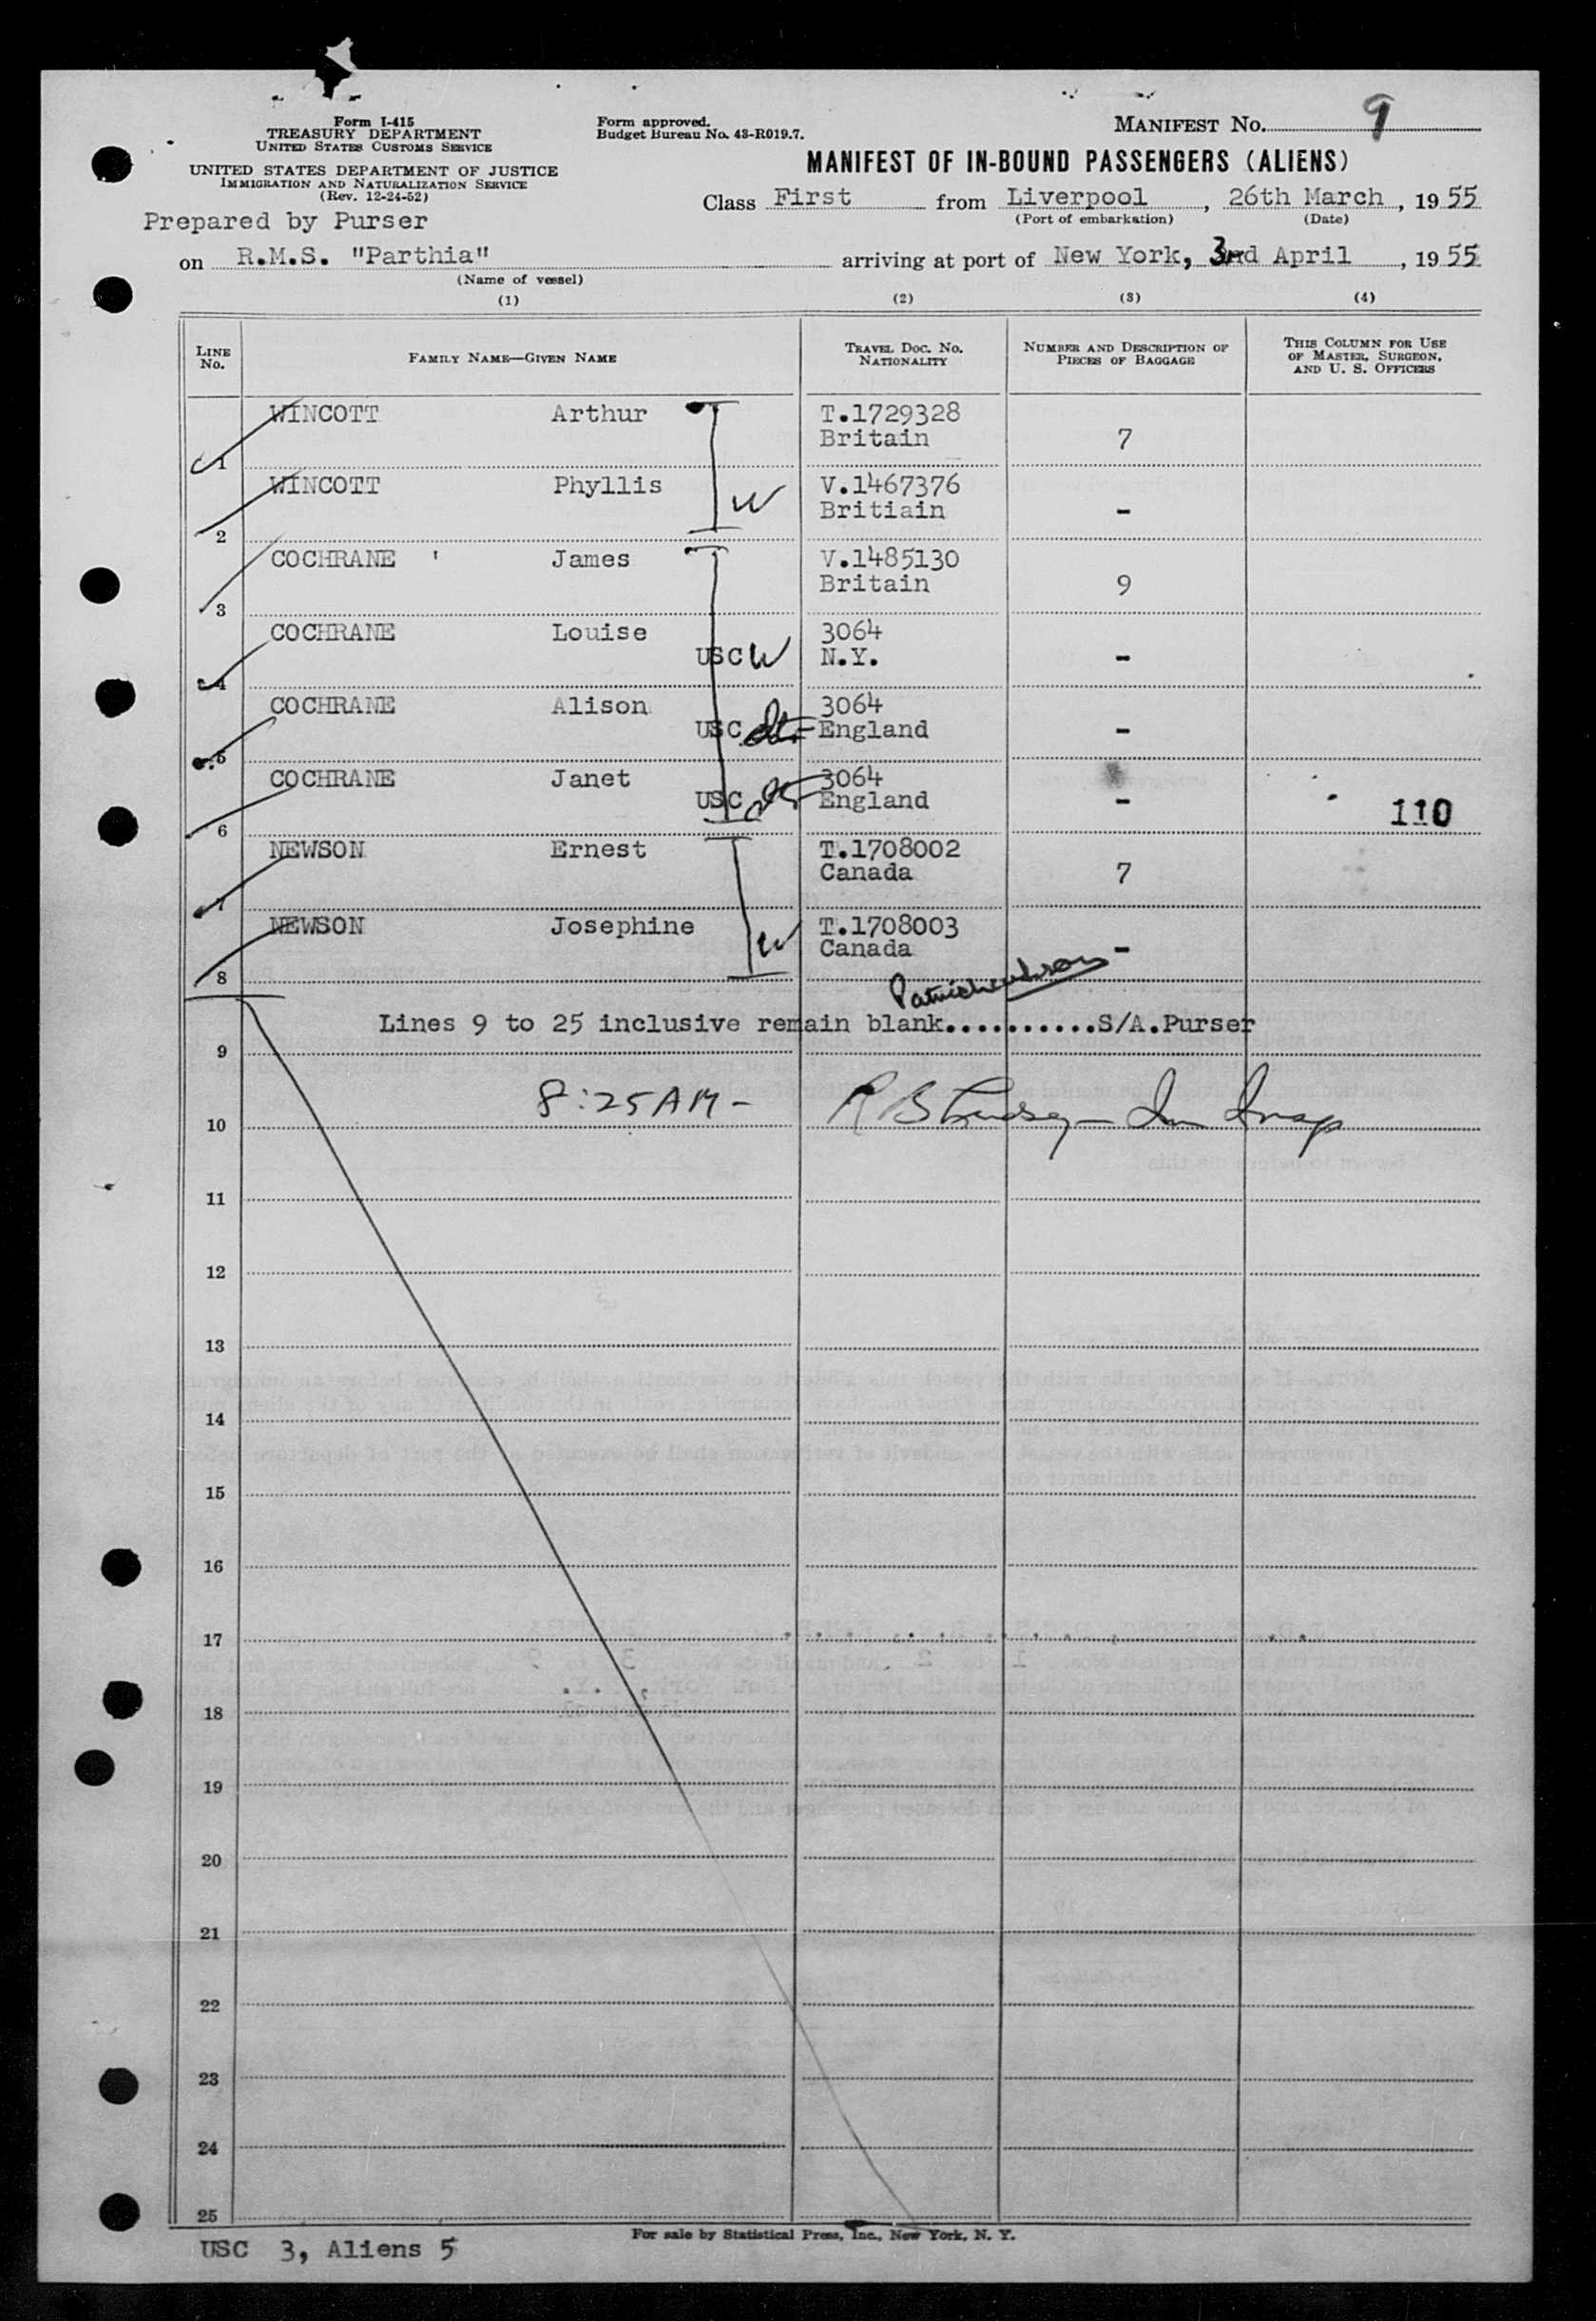 Form I-415
TREASURY DEPARTMENT
UNITED STATES CUSTOMS SERVICE
UNITED STATES DEPARTMENT OF JUSTICE
IMMIGRATION AND NATURALIZATION SERVICE
(Rev. 12-24-52)
Form approved.
Budget Bureau No. 43-R019.7.
MANIFEST NO. 9
MANIFEST OF IN-BOUND PASSENGERS (ALIENS)
Class First from Liverpool, 26th March, 1955
(Port of embarkation) (Date)
Prepared by Purser
on R.M.S. "Parthia" arriving at port of New York, 3rd April, 1955
(Name of vessel)
(1) (2) (3) (4)
LINE NO. FAMILY NAME—GIVEN NAME TRAVEL DOC. NO. NATIONALITY NUMBER AND DESCRIPTION OF PIECES OF BAGGAGE THIS COLUMN FOR USE OF MASTER, SURGEON, AND U. S. OFFICERS
WINCOTT Arthur T.1729328
1 Britain 7
WINCOTT Phyllis V.1467376
2 W Britiain -
COCHRANE ' James V.1485130
3 Britain 9
COCHRANE Louise 3064
4 USC W N.Y. -
COCHRANE Alison 3064
5 USC England -
COCHRANE Janet 3064
6 USC England - 110
NEWSON Ernest T.1708002
7 Canada 7
NEWSON Josephine T.1708003
8 W Canada -
Lines 9 to 25 inclusive remain blank...........S/A.Purser
9
8:25 AM -
10
11
12
13
14
15
16
17
18
19
20
21
22
23
24
25
For sale by Statistical Press, Inc., New York, N. Y.
USC 3, Aliens 5